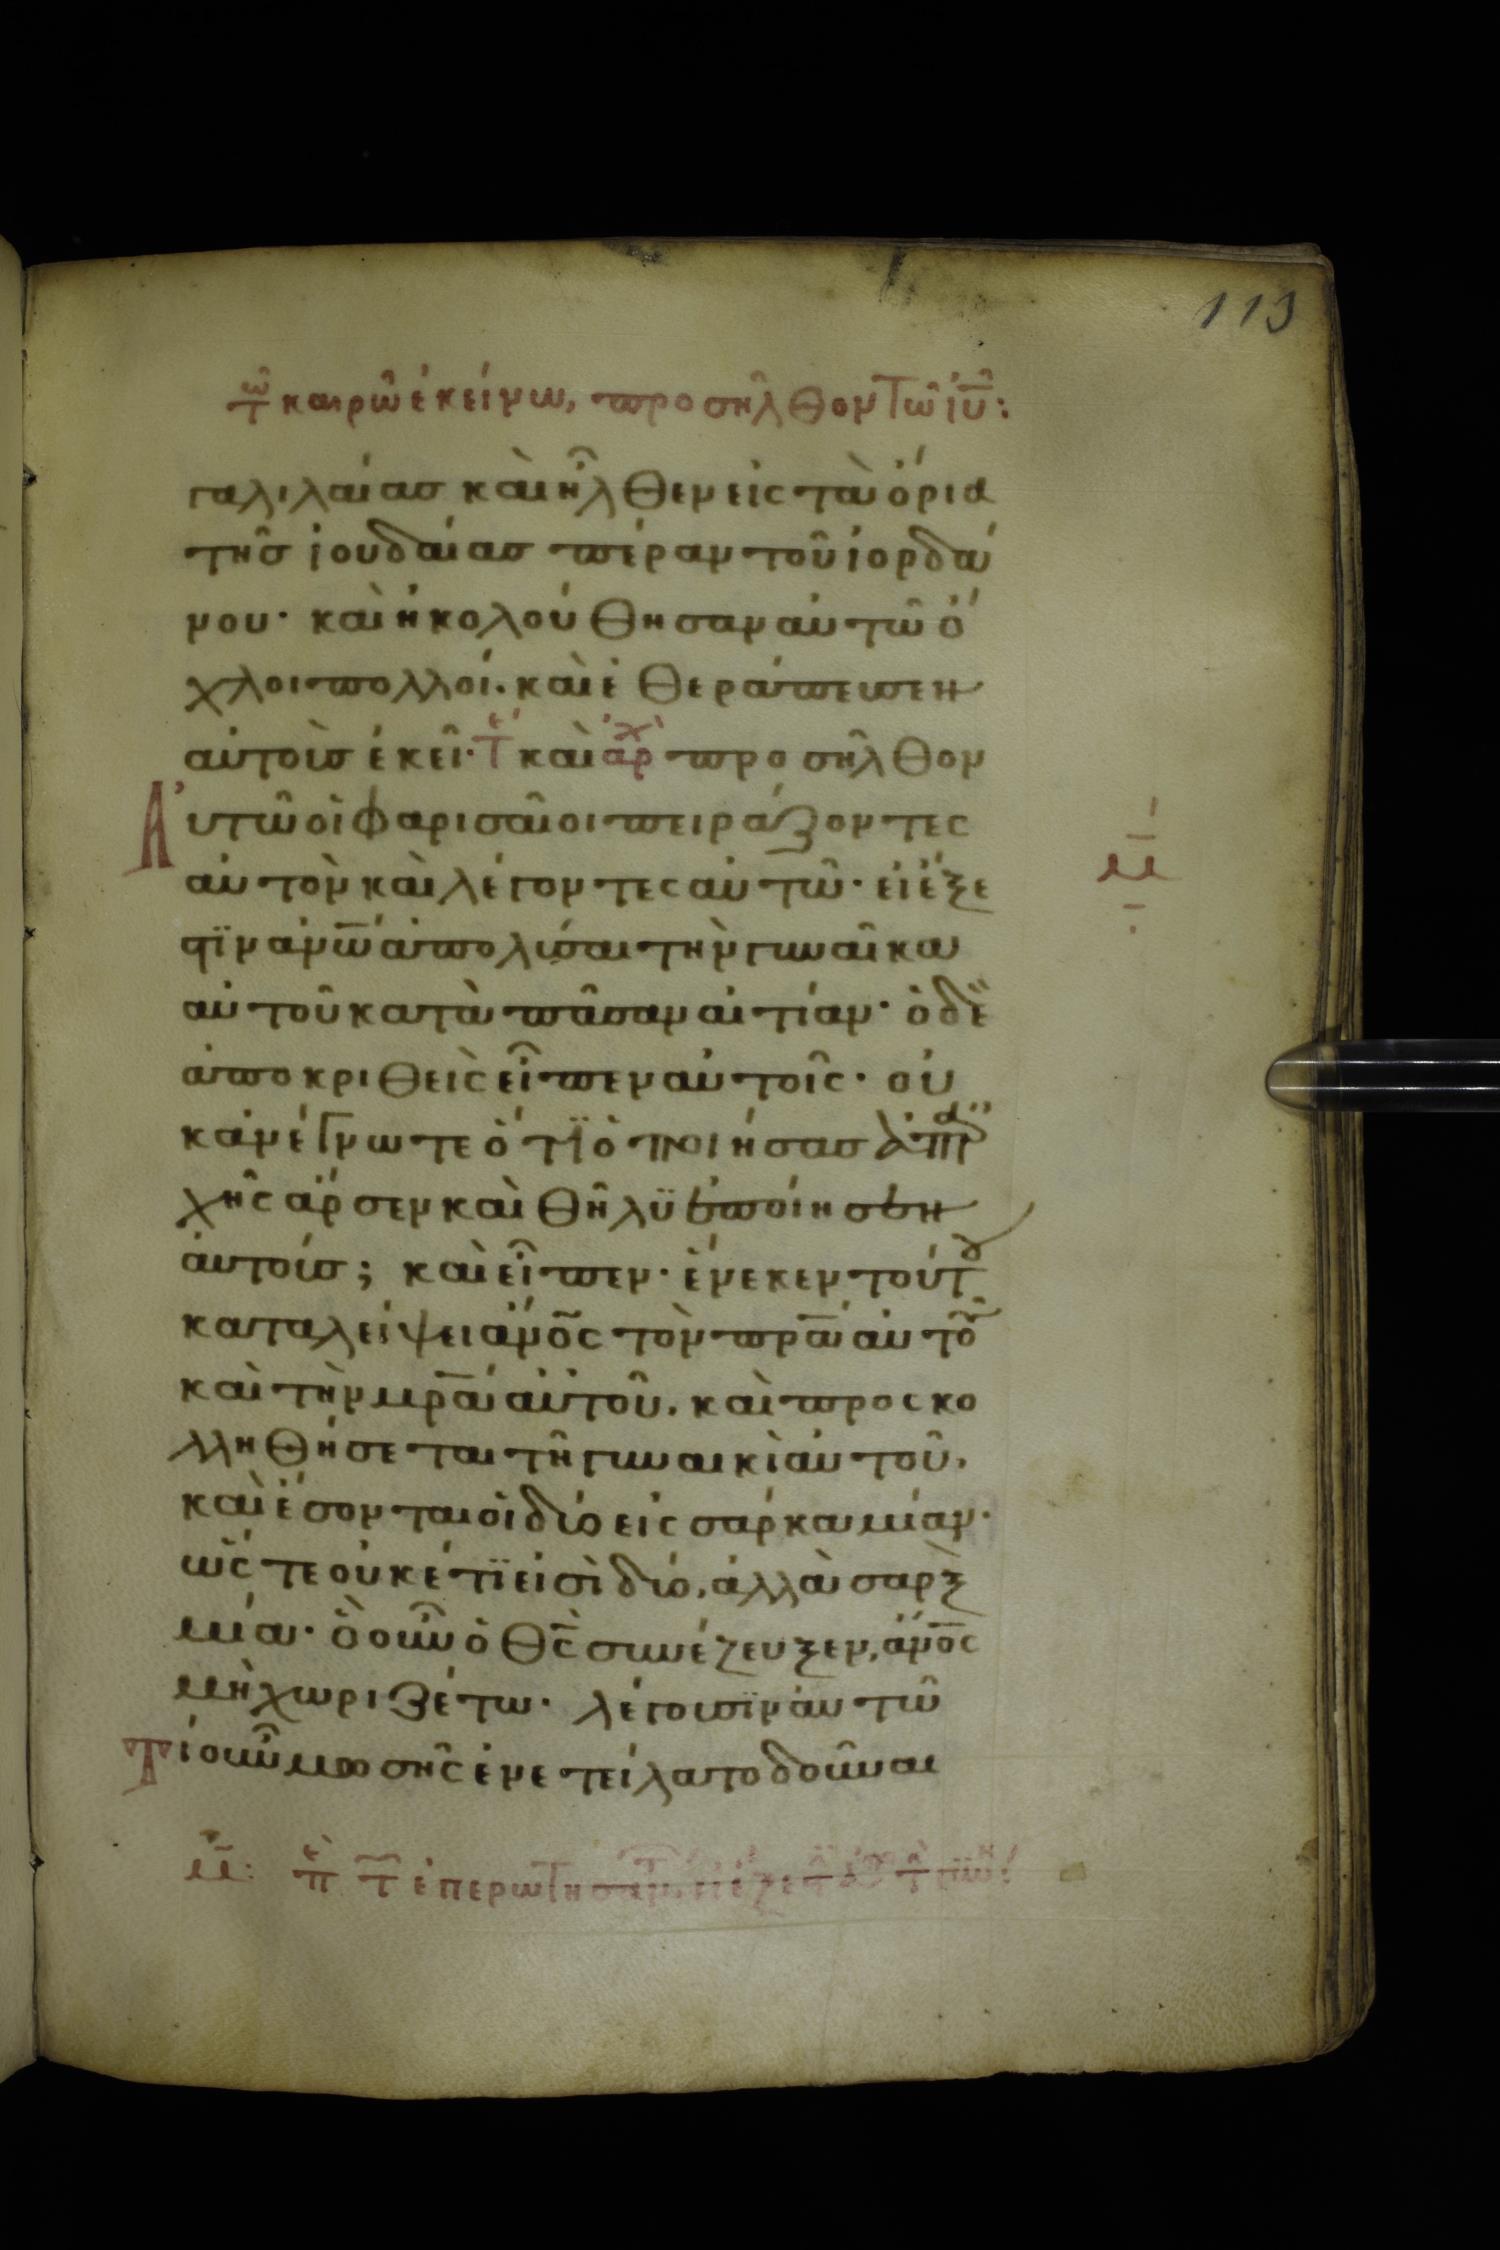 113
τῶ καιρῶ ἐκείνω, προσῆλθον τῶ ἰῦ:
γαλιλαίασ καὶ ἦλθεν εἰς τὰ ὅρια
τῆσ ἰουδαίασ πέραν τοῦ ἰορδά
νου· καὶ ἠκολούθησαν αὐτῶ ὄ
χλοι πολλοί. καὶ ἐθεράπευσεν
αὐτοὺσ ἐκεῖ· τε καὶ ἀρχ προσῆλθον
Αὐτῶ οἱ φαρισαῖοι πειράζοντες
αὐτὸν καὶ λέγοντες αὐτῶ· εἰ ἔξε
στιν ἀνω̅ ἀπολύσαι τὴν γυναῖκα
αὐτοῦ κατὰ πᾶσαν αἰτίαν· ὁ δὲ
ἀποκριθεὶς εἶπεν αὐτοῖς· οὐ
κ ἀνέγνωτε ὅτι ὁ ποιήσασ ἀπαρ
χῆς ἄρσεν καὶ θῆλυ ἐποίησεν
αὐτούσ; καὶ εἶπεν· ἕνεκεν τούτου
καταλείψει ἄνο̅ς τὸν πρα̅ αὐτοῦ
καὶ τὴν μρα̅ αὐτοῦ, καὶ προσκο
λληθήσεται τῆ γυναικὶ αὐτοῦ,
καὶ ἔσονται οἱ δύο εἰς σάρκα μίαν·
ὥςτε οὐκέτι εἰσὶ δύο, ἀλλὰ σὰρξ
μία· ὃ οὖν ὁ θς̅ συνέζευξεν, ἄνο̅ς
μὴ χωριζέτω· λέγουσιν αὐτῶ
Τί οὖν μωσῆς ἐνετείλατο δοῦναι
μ̅
μ̅: ἐπερώτησαν